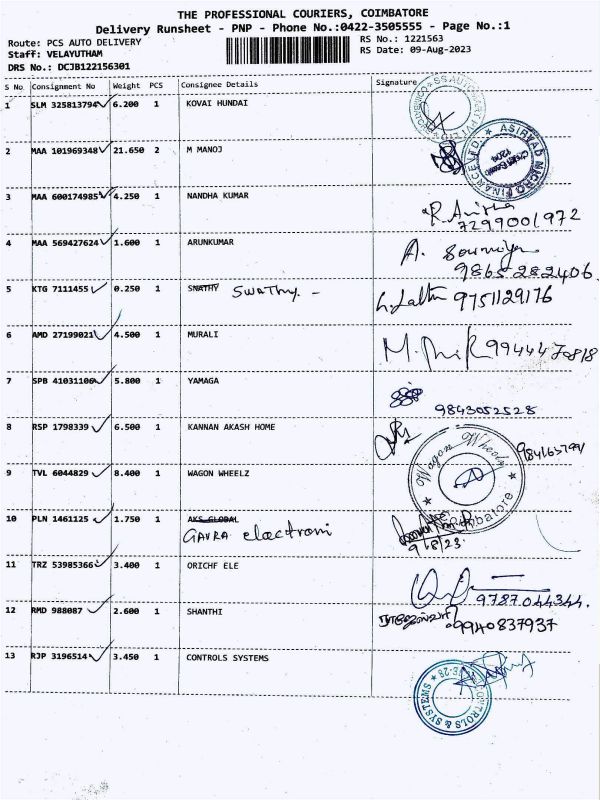 THE PROFESSIONAL COURIERS, COIMBATORE
Delivery Runsheet - PNP - Phone No.:0422-3505555 - Page No.:1
Route: PCS AUTO DELIVERY
Staff: VELAYUTHAM
DRS No.: DCJB122156301
RS No.: 1221563
RS Date: 09-Aug-2023
S No. Consignment No Weight PCS Consignee Details Signature
1 SLM 325813794 6.200 1 KOVAI HUNDAI
2 MAA 101969348 21.650 2 M MANOJ
ASIRVAD MICRO FINANCE LTD.
3 MAA 600174985 4.250 1 NANDHA KUMAR
7299001972
4 MAA 569427624 1.600 1 ARUNKUMAR
A. Sowmiya
9865282406.
5 KTG 7111455 0.250 1 SNATHY Swathy. -
9751129176
6 AMD 27199021 4.500 1 MURALI
9944470818
7 SPB 41031106 5.800 1 YAMAGA
9843052528
8 RSP 1798339 6.500 1 KANNAN AKASH HOME
9 TVL 6044829 8.400 1 WAGON WHEELZ
Wagon Wheelz
Coimbatore
10 PLN 1461125 1.750 1 AKS GLOBAL
GAVRA electroni
9/8/23
11 TRZ 53985366 3.400 1 ORICHF ELE
9787044344.
12 RMD 988087 2.600 1 SHANTHI
9940837937
13 RJP 3196514 3.450 1 CONTROLS SYSTEMS
CONTROLS & SYSTEMS